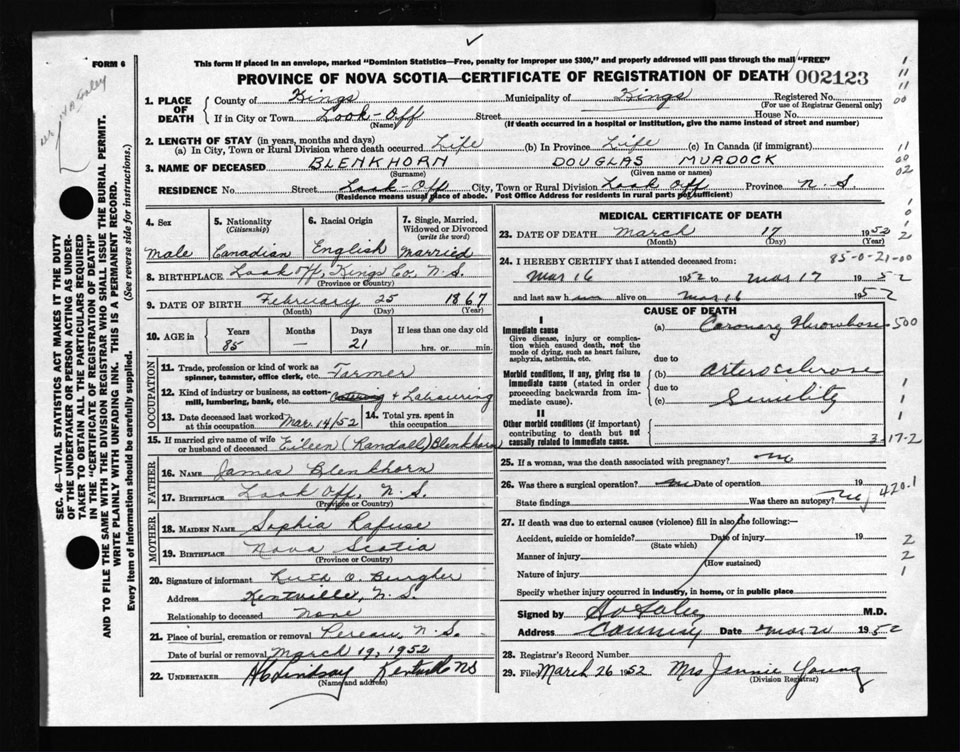 FORM 6
This form if placed in an envelope, marked "Dominion Statistics—Free, penalty for improper use $300," and properly addressed will pass through the mail "FREE"
PROVINCE OF NOVA SCOTIA—CERTIFICATE OF REGISTRATION OF DEATH 002123
1. PLACE OF DEATH
County of Kings Municipality of Kings Registered No.
(For use of Registrar General only)
If in City or Town Look-Off Street House No.
(Name) (If death occurred in a hospital or institution, give the name instead of street and number)
2. LENGTH OF STAY (in years, months and days)
(a) In City, Town or Rural Division where death occurred Life (b) In Province Life (c) In Canada (if immigrant)
3. NAME OF DECEASED BLENKHORN DOUGLAS MURDOCK
(Surname) (Given name or names)
RESIDENCE No. Street Look-Off City, Town or Rural Division Look Off Province N.S.
(Residence means usual place of abode. Post Office Address for residents in rural parts not sufficient)
SEC. 46—VITAL STATISTICS ACT MAKES IT THE DUTY
OF THE UNDERTAKER OR PERSON ACTING AS UNDER-
TAKER TO OBTAIN ALL THE PARTICULARS REQUIRED
IN THE "CERTIFICATE OF REGISTRATION OF DEATH"
AND TO FILE THE SAME WITH THE DIVISION REGISTRAR WHO SHALL ISSUE THE BURIAL PERMIT.
WRITE PLAINLY WITH UNFADING INK. THIS IS A PERMANENT RECORD.
Every item of information should be carefully supplied. (See reverse side for instructions.)
4. Sex
Male
5. Nationality
(Citizenship)
Canadian
6. Racial Origin
English
7. Single, Married, Widowed or Divorced
(write the word)
Married
8. BIRTHPLACE Look Off, Kings Co, N.S.
(Province or Country)
9. DATE OF BIRTH February 25 1867
(Month) (Day) (Year)
10. AGE in Years Months Days If less than one day old
85 — 21 hrs. or min.
OCCUPATION
11. Trade, profession or kind of work as
spinner, teamster, office clerk, etc. Farmer
12. Kind of industry or business, as cotton-
mill, lumbering, bank, etc. & Labouring
13. Date deceased last worked
at this occupation Mar. 14/52
14. Total yrs. spent in
this occupation
15. If married give name of wife
or husband of deceased Eileen (Randall) Blenkhorn
FATHER
16. NAME James Blenkhorn
17. BIRTHPLACE Look Off, N.S.
(Province or Country)
MOTHER
18. MAIDEN NAME Sophia Rafuse
19. BIRTHPLACE Nova Scotia
(Province or Country)
20. Signature of informant Ruth O. Burgher
Address Kentville, N.S.
Relationship to deceased None
21. Place of burial, cremation or removal Pereau, N.S.
Date of burial or removal March 19, 1952
22. UNDERTAKER H C Lindsay Kentville NS
(Name and address)
MEDICAL CERTIFICATE OF DEATH
23. DATE OF DEATH March 17 1952
(Month) (Day) (Year)
85-0-21-00
24. I HEREBY CERTIFY that I attended deceased from:
Mar 16 1952 to Mar 17 1952
and last saw him alive on Mar 16 1952
CAUSE OF DEATH
I
Immediate cause
Give disease, injury or complica-
tion which caused death, not the
mode of dying, such as heart failure,
asphyxia, asthenia, etc.
(a) Coronary Thrombosis -500
due to
Morbid conditions, if any, giving rise to
immediate cause (stated in order
proceeding backwards from im-
mediate cause).
(b) arterosclerosis
due to
(c) Senility
II
Other morbid conditions (if important)
contributing to death but not
causally related to immediate cause.
3-17-2
25. If a woman, was the death associated with pregnancy? no
26. Was there a surgical operation? no Date of operation 19
State findings Was there an autopsy? no
420.1
27. If death was due to external causes (violence) fill in also the following:—
Accident, suicide or homicide? Date of injury 19
(State which)
Manner of injury
(How sustained)
Nature of injury
Specify whether injury occurred in industry, in home, or in public place
Signed by M.D.
Address Canning Date Mar 20 1952
28. Registrar's Record Number
29. Filed March 26 1952 Mrs Jennie Young
(Division Registrar)